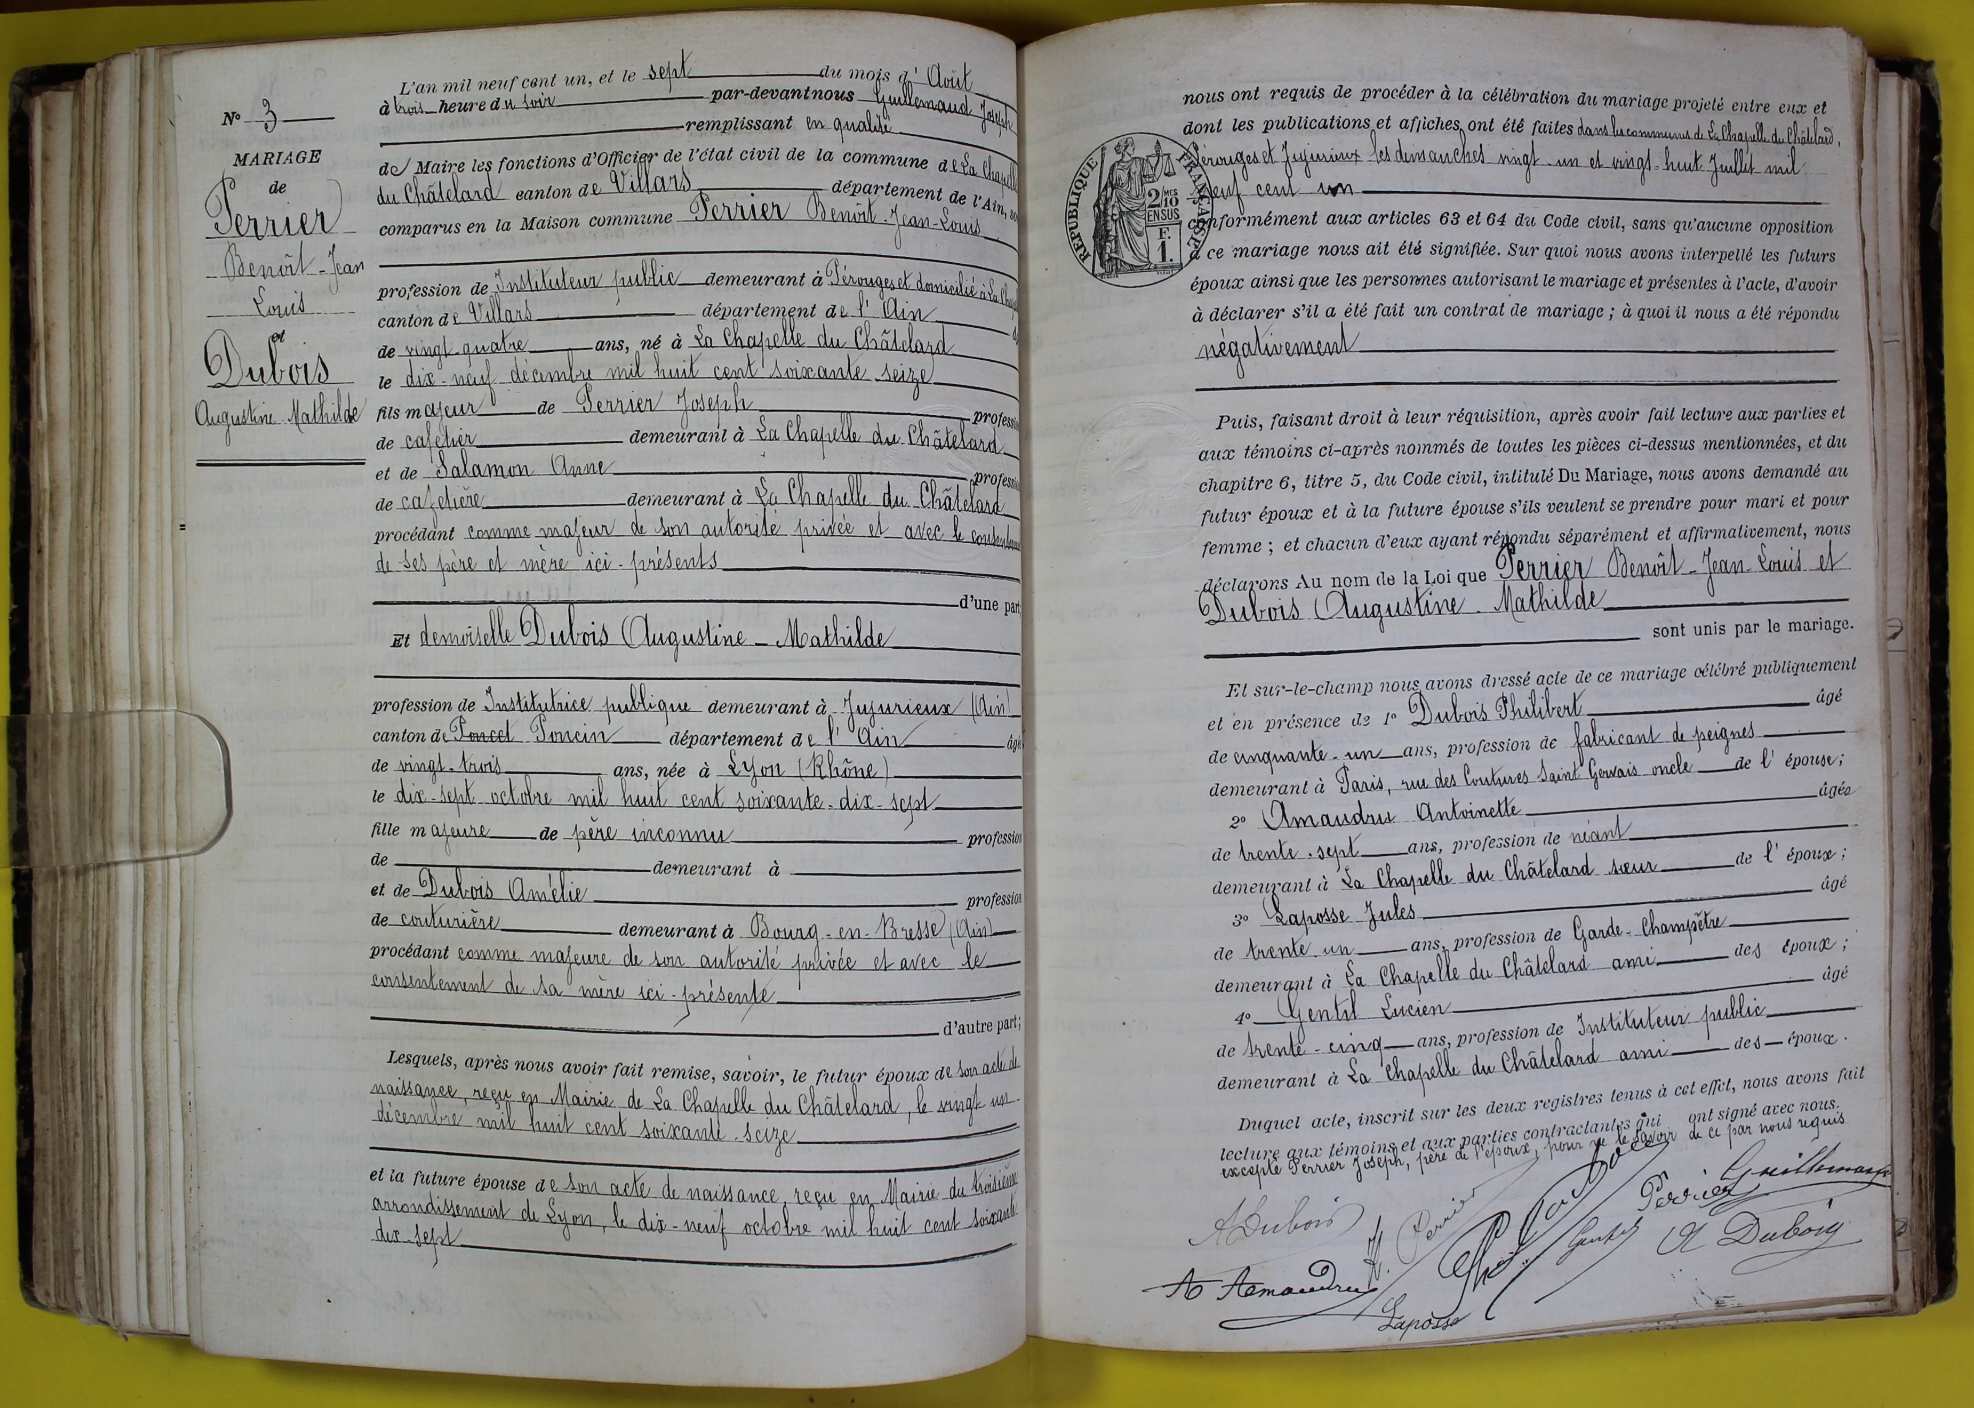 N° 3
MARIAGE
de
Perrier
Benoît-Jean
Louis
et
Dubois
Augustine Mathilde
L'an mil neuf cent un, et le sept du mois d'Août
à trois heure du soir par-devant nous Guillemaud Joseph
remplissant en qualité
de Maire les fonctions d'Officier de l'état civil de la commune de La Chapelle
du Châtelard canton de Villars département de l'Ain,
comparus en la Maison commune Perrier Benoît-Jean-Louis
profession de Instituteur public demeurant à Pérouges et domicilié à La
canton de Villars département de l'Ain
de vingt-quatre ans, né à La Chapelle du Châtelard
le dix-neuf décembre mil huit cent soixante-seize
fils majeur de Perrier Joseph profession
de cafetier demeurant à La Chapelle du Châtelard
et de Salamon Anne profession
de cafetière demeurant à La Chapelle du Châtelard
procédant comme majeur de son autorité privée et avec le consentement
de ses père et mère ici-présents
d'une part
Et demoiselle Dubois Augustine-Mathilde
profession de Institutrice publique demeurant à Jujurieux (Ain)
canton de Poncet Poncin département de l'Ain âgé
de vingt-trois ans, née à Lyon (Rhône)
le dix-sept octobre mil huit cent soixante-dix-sept
fille majeure de père inconnu profession
de demeurant à
et de Dubois Amélie profession
de couturière demeurant à Bourg-en-Bresse (Ain)
procédant comme majeure de son autorité privée et avec le
consentement de sa mère ici-présente
d'autre part;
Lesquels, après nous avoir fait remise, savoir, le futur époux de son acte de
naissance, reçu en Mairie de La Chapelle du Châtelard, le vingt un
décembre mil huit cent soixante-seize
et la future épouse de son acte de naissance, reçu en Mairie du troisième
arrondissement de Lyon, le dix-neuf octobre mil huit cent soixante
dix-sept
nous ont requis de procéder à la célébration du mariage projeté entre eux et
dont les publications et affiches ont été faites dans les communes de La Chapelle du Châtelard,
Pérouges et Jujurieux les dimanches vingt-un et vingt-huit Juillet mil
neuf cent un
conformément aux articles 63 et 64 du Code civil, sans qu'aucune opposition
à ce mariage nous ait été signifiée. Sur quoi nous avons interpellé les futurs
époux ainsi que les personnes autorisant le mariage et présentes à l'acte, d'avoir
à déclarer s'il a été fait un contrat de mariage; à quoi il nous a été répondu
négativement
RÉPUBLIQUE FRANÇAISE
2/10
EN SUS
F.
1.
Puis, faisant droit à leur réquisition, après avoir fait lecture aux parties et
aux témoins ci-après nommés de toutes les pièces ci-dessus mentionnées, et du
chapitre 6, titre 5, du Code civil, intitulé Du Mariage, nous avons demandé au
futur époux et à la future épouse s'ils veulent se prendre pour mari et pour
femme; et chacun d'eux ayant répondu séparément et affirmativement, nous
déclarons Au nom de la Loi que Perrier Benoît-Jean-Louis et
Dubois Augustine-Mathilde
sont unis par le mariage.
Et sur-le-champ nous avons dressé acte de ce mariage célébré publiquement
et en présence de 1° Dubois Philibert âgé
de cinquante-un ans, profession de fabricant de peignes
demeurant à Paris, rue des Coutures Saint Gervais oncle de l'épouse;
2° Amaudru Antoinette âgée
de trente-sept ans, profession de néant
demeurant à La Chapelle du Châtelard sœur de l'époux;
3° Laposse Jules âgé
de trente-un ans, profession de Garde-Champêtre
demeurant à La Chapelle du Châtelard ami des époux;
4° Gentil Lucien âgé
de trente-cinq ans, profession de Instituteur public
demeurant à La Chapelle du Châtelard ami des époux.
Duquel acte, inscrit sur les deux registres tenus à cet effet, nous avons fait
lecture aux témoins et aux parties contractantes qui ont signé avec nous.
excepté Perrier Joseph, père de l'époux, pour ne le savoir de ce par nous requis
A Dubois
Perrier
Perrier
Guillemaud
A Dubois
A Amaudru
Laposse
Gentil